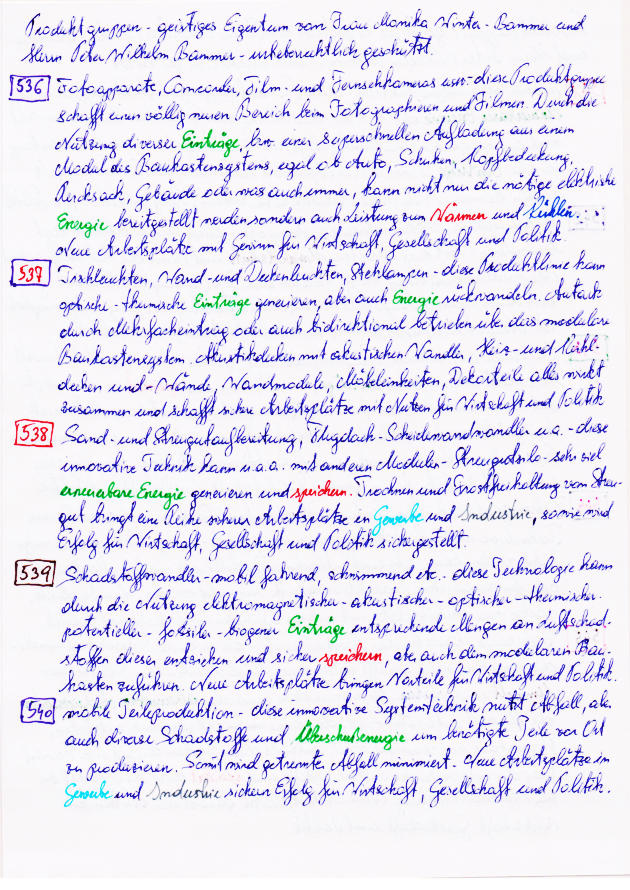 Produktgruppen - geistiges Eigentum von Frau Monika Winter-Bammer und
Herrn Peter Wilhelm Bammer - urheberrechtlich geschützt.
536 Fotoapparate, Camcorder, Film- und Fernsehkameras usw. - diese Produktgruppe
schafft einen völlig neuen Bereich beim Fotographieren und Filmen. Durch die
Nutzung diverser Einträge, bzw. einer superschnellen Aufladung aus einem
Modul des Baukastensystems, egal ob Auto, Schuhen, Kopfbedeckung,
Rucksack, Gebäude oder was auch immer, kann nicht nur die nötige elektrische
Energie bereitgestellt werden sondern auch Leistung zum Wärmen und Kühlen.
Neue Arbeitsplätze mit Gewinn für Wirtschaft, Gesellschaft und Politik.
537 Tischleuchten, Wand- und Deckenleuchten, Stehlampen - diese Produktlinie kann
optische - thermische Einträge generieren, aber auch Energie rückwandeln. Autark
durch Mehrfacheintrag oder auch bidirektional betrieben über das modulare
Baukastensystem. Akustikdecken mit akustischen Wandler, Heiz- und Kühl-
decken und -Wände, Wandmodule, Möbeleinheiten, Dekorteile alles wirkt
zusammen und schafft sichere Arbeitsplätze mit Nutzen für Wirtschaft und Politik
538 Sand- und Streugutaufbereitung, Flugdach - Scheidewandwandler u.a. - diese
innovative Technik kann u.a. mit anderen Modulen - Streugutsilo - sehr viel
erneuerbare Energie generieren und speichern. Trocknen und Frostfreihaltung vom Streu-
gut bringt eine Reihe sicherer Arbeitsplätze in Gewerbe und Industrie, sowie wird
Erfolg für Wirtschaft, Gesellschaft und Politik sichergestellt.
539 Schadstoffwandler - mobil fahrend, schwimmend etc. - diese Technologie kann
durch die Nutzung elektromagnetischer - akustischer - optischer - thermischer -
potentieller - fossiler - biogener Einträge entsprechende Mengen an Luftschad-
stoffen diesen entziehen und sicher speichern, aber auch dem modularen Bau-
kasten zuführen. Neue Arbeitsplätze bringen Vorteile für Wirtschaft und Politik.
540 mobile Teileproduktion - diese innovative Systemtechnik nutzt Abfall, aber
auch diverse Schadstoffe und Überschußenergie um benötigte Teile vor Ort
zu produzieren. Somit wird getrennter Abfall minimiert. Neue Arbeitsplätze in
Gewerbe und Industrie sichern Erfolg für Wirtschaft, Gesellschaft und Politik.